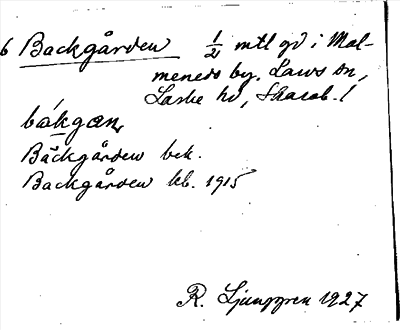 6 Backgården 1/2 mtl gd i Mal-
meneds by, Laws sn,
Laske hd, Skarab. l
bákgan
Bäckgården bek.
Backgården kb. 1915
R. Ljunggren 1927